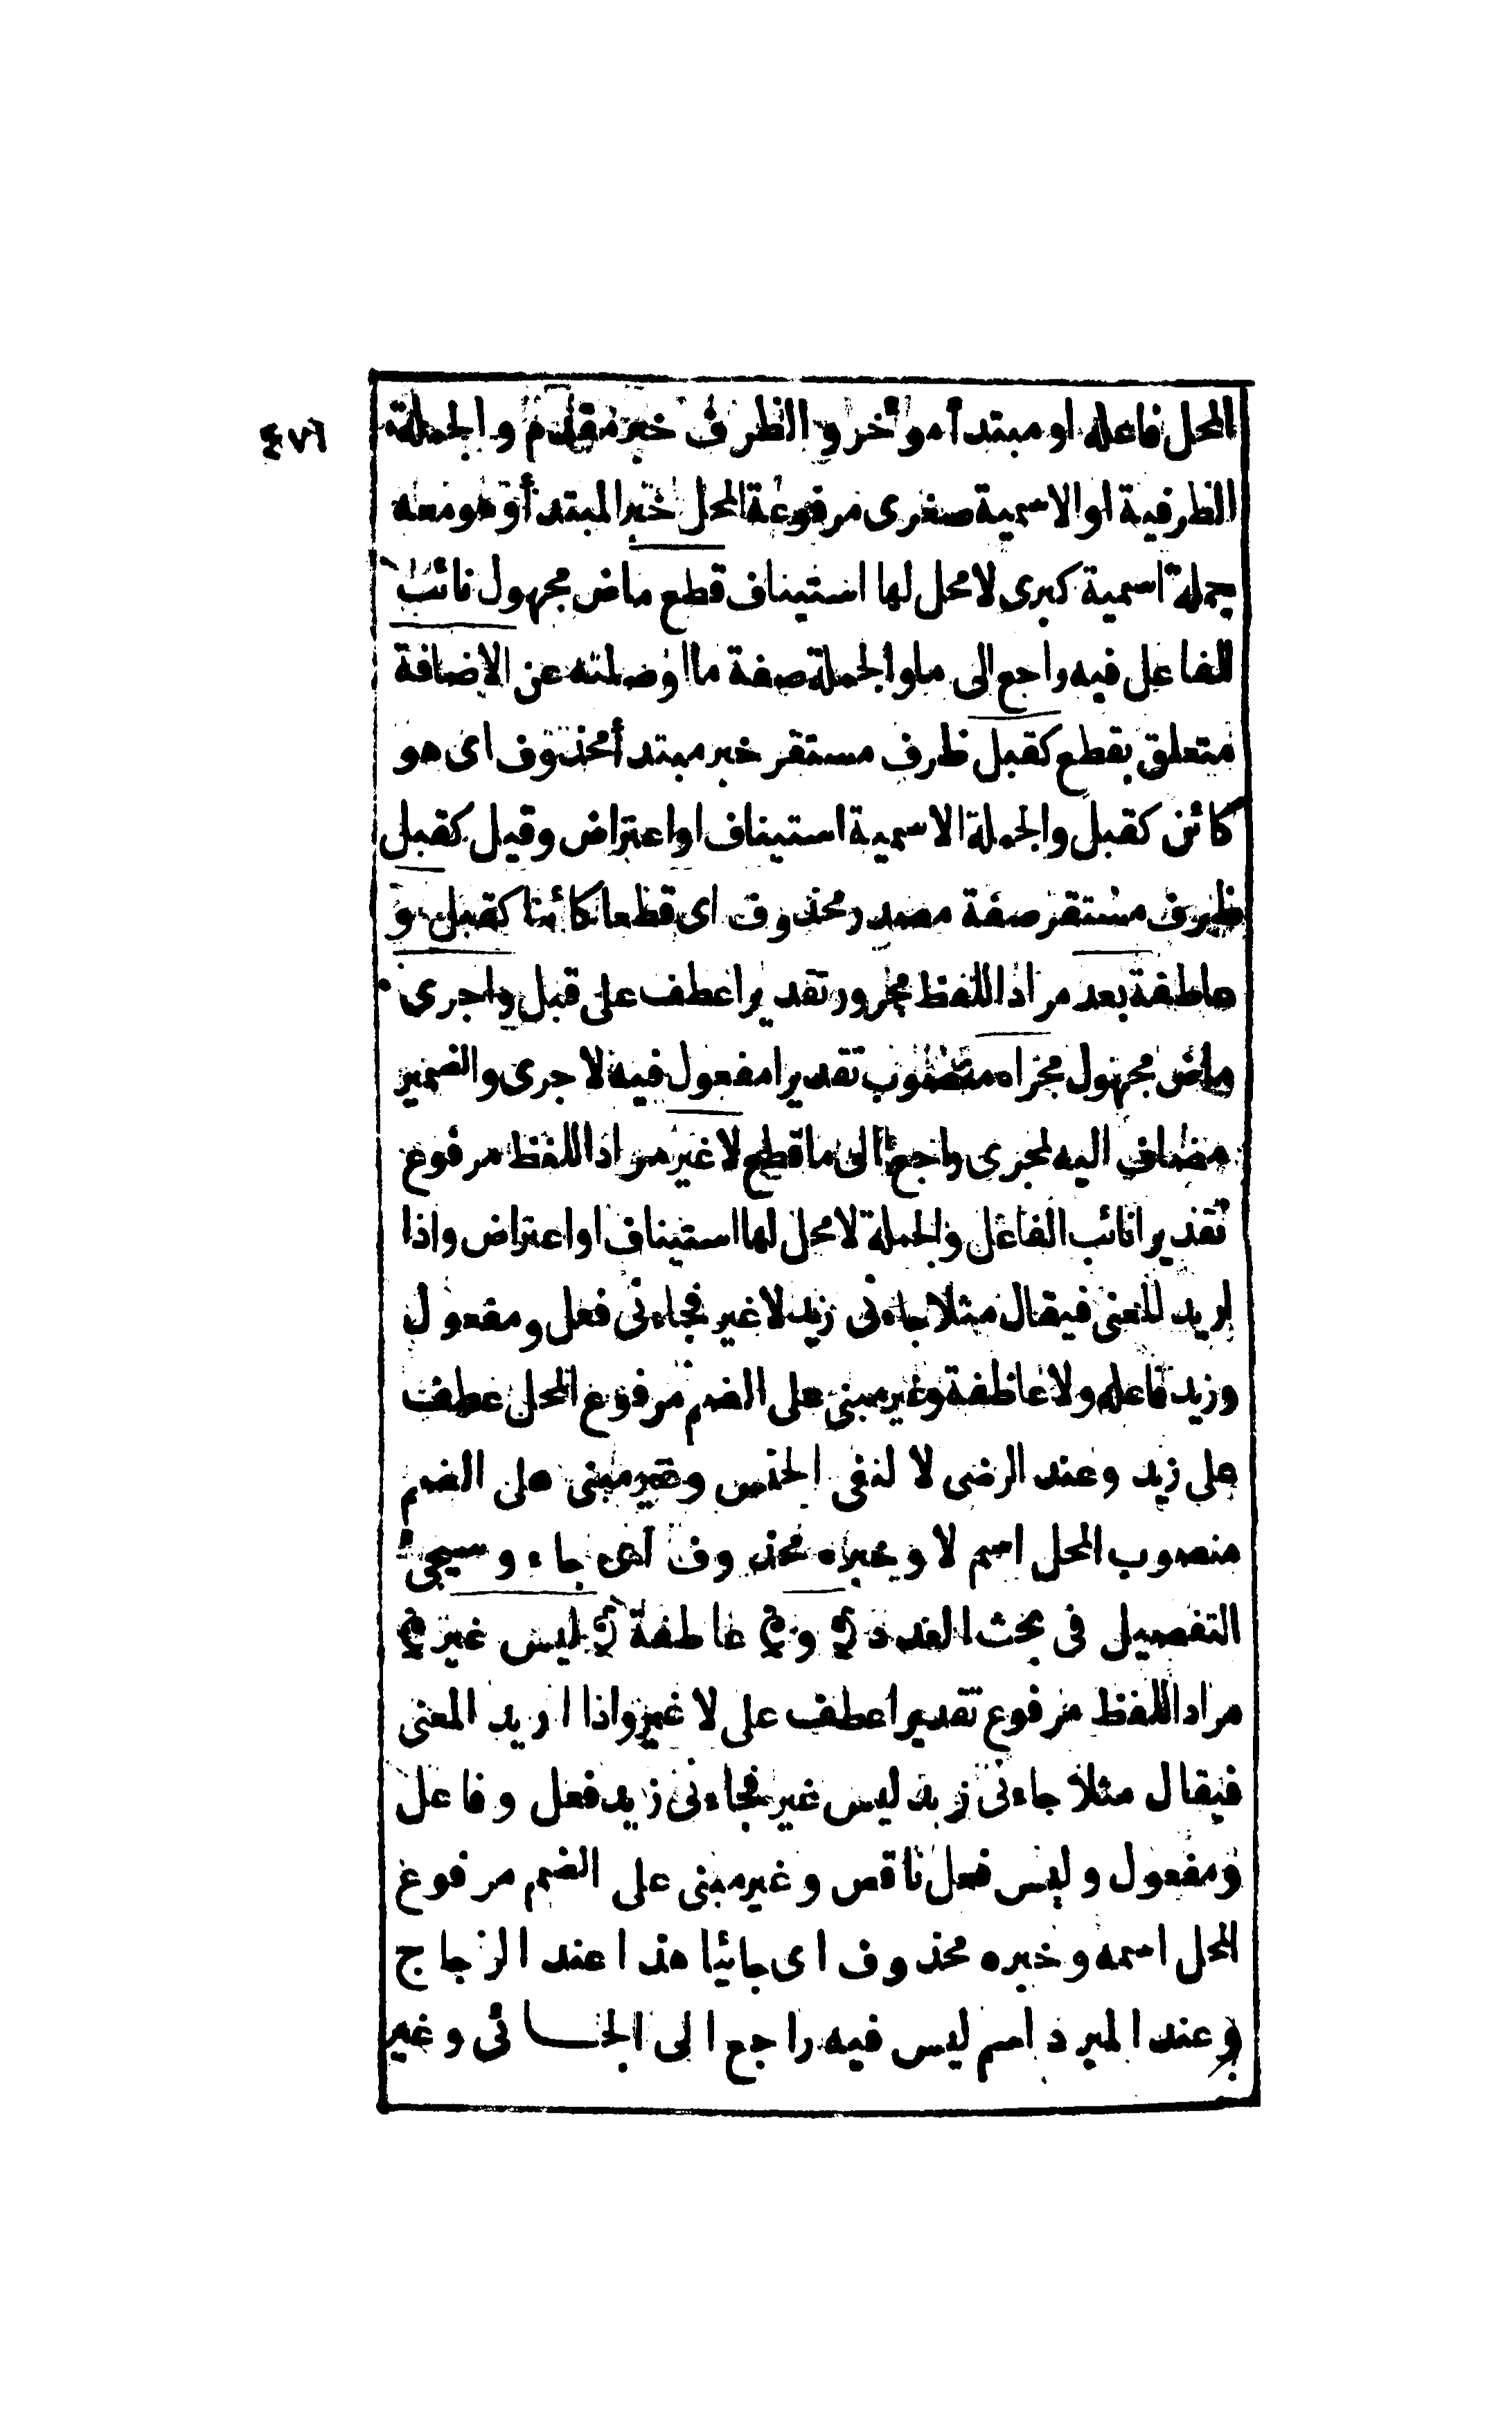 ٤٧٦
المحل فاعله او مبتدأ مؤخر والظرف خبر مقدم والجملة
الظرفية او الاسمية صغرى مرفوعة المحل خبر المبتدأ وهو معه
جملة اسمية كبرى لا محل لها استيناف قطع ماض مجهول نائب
الفاعل فيه راجع الى ما والجملة صفة ما او صلته عن الاضافة
متعلق بقطع كقبل ظرف مستقر خبر مبتدأ محذوف اى هو
كائن كقبل والجملة الاسمية استيناف او اعتراض وقيل كقبل
ظرف مستقر صفة مصدر محذوف اى قطعا كائنا كقبل و
عاطفة بعد مراد اللفظ مجرور تقديرا عطف على قبل واجرى
ماض مجهول مجراه منصوب تقديرا مفعول فيه لاجرى والضمير
مضاف اليه لمجرى راجع الى ما قطع لا غير مراد اللفظ مرفوع
تقديرا نائب الفاعل والجملة لا محل لها استيناف او اعتراض واذا
اريد المعنى فيقال مثلا جاءنى زيد لا غير فجاءنى فعل ومفعول
وزيد فاعله ولا عاطفة وغير مبنى على الضم مرفوع المحل عطف
على زيد وعند الرضى لا لنفى الجنس وغير مبنى على الضم
منصوب المحل اسم لا وخبره محذوف اى جاء وسيجئ
التفصيل فى بحث العدد و عاطفة ليس غير
مراد اللفظ مرفوع تقديرا عطف على لا غير واذا اريد المعنى
فيقال مثلا جاءنى زيد ليس غير فجاءنى زيد فعل وفاعل
ومفعول وليس فعل ناقص وغير مبنى على الضم مرفوع
المحل اسمه وخبره محذوف اى جائيا هذا عند الزجاج
وعند المبرد اسم ليس فيه راجع الى الجائى وغير